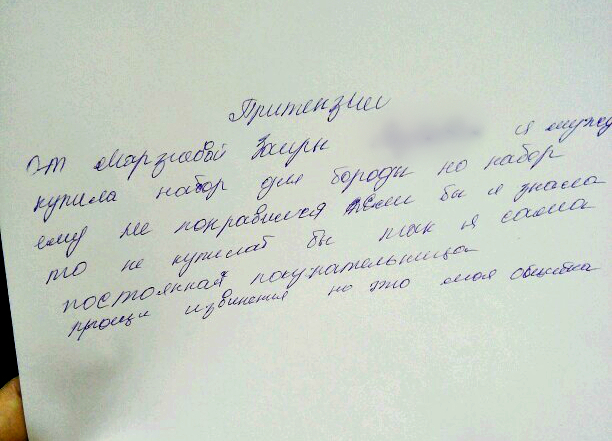 Притензии
От Марзиевой Заиры я мужу
купила набор для бороды но набор
ему не понравился если бы я знала
то не купилаб бы так я сама
постоянная покупательница
прошу извинения но это моя ошибка